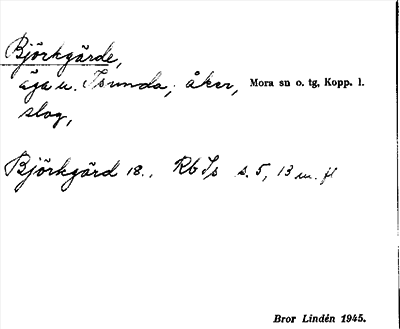 Björkgärde,
äga u. Isunda; åker, Mora sn o. tg, Kopp. l.
slog,
Björkgärd 18., Rb Is s. 5, 13 m. fl
Bror Lindén 1945.